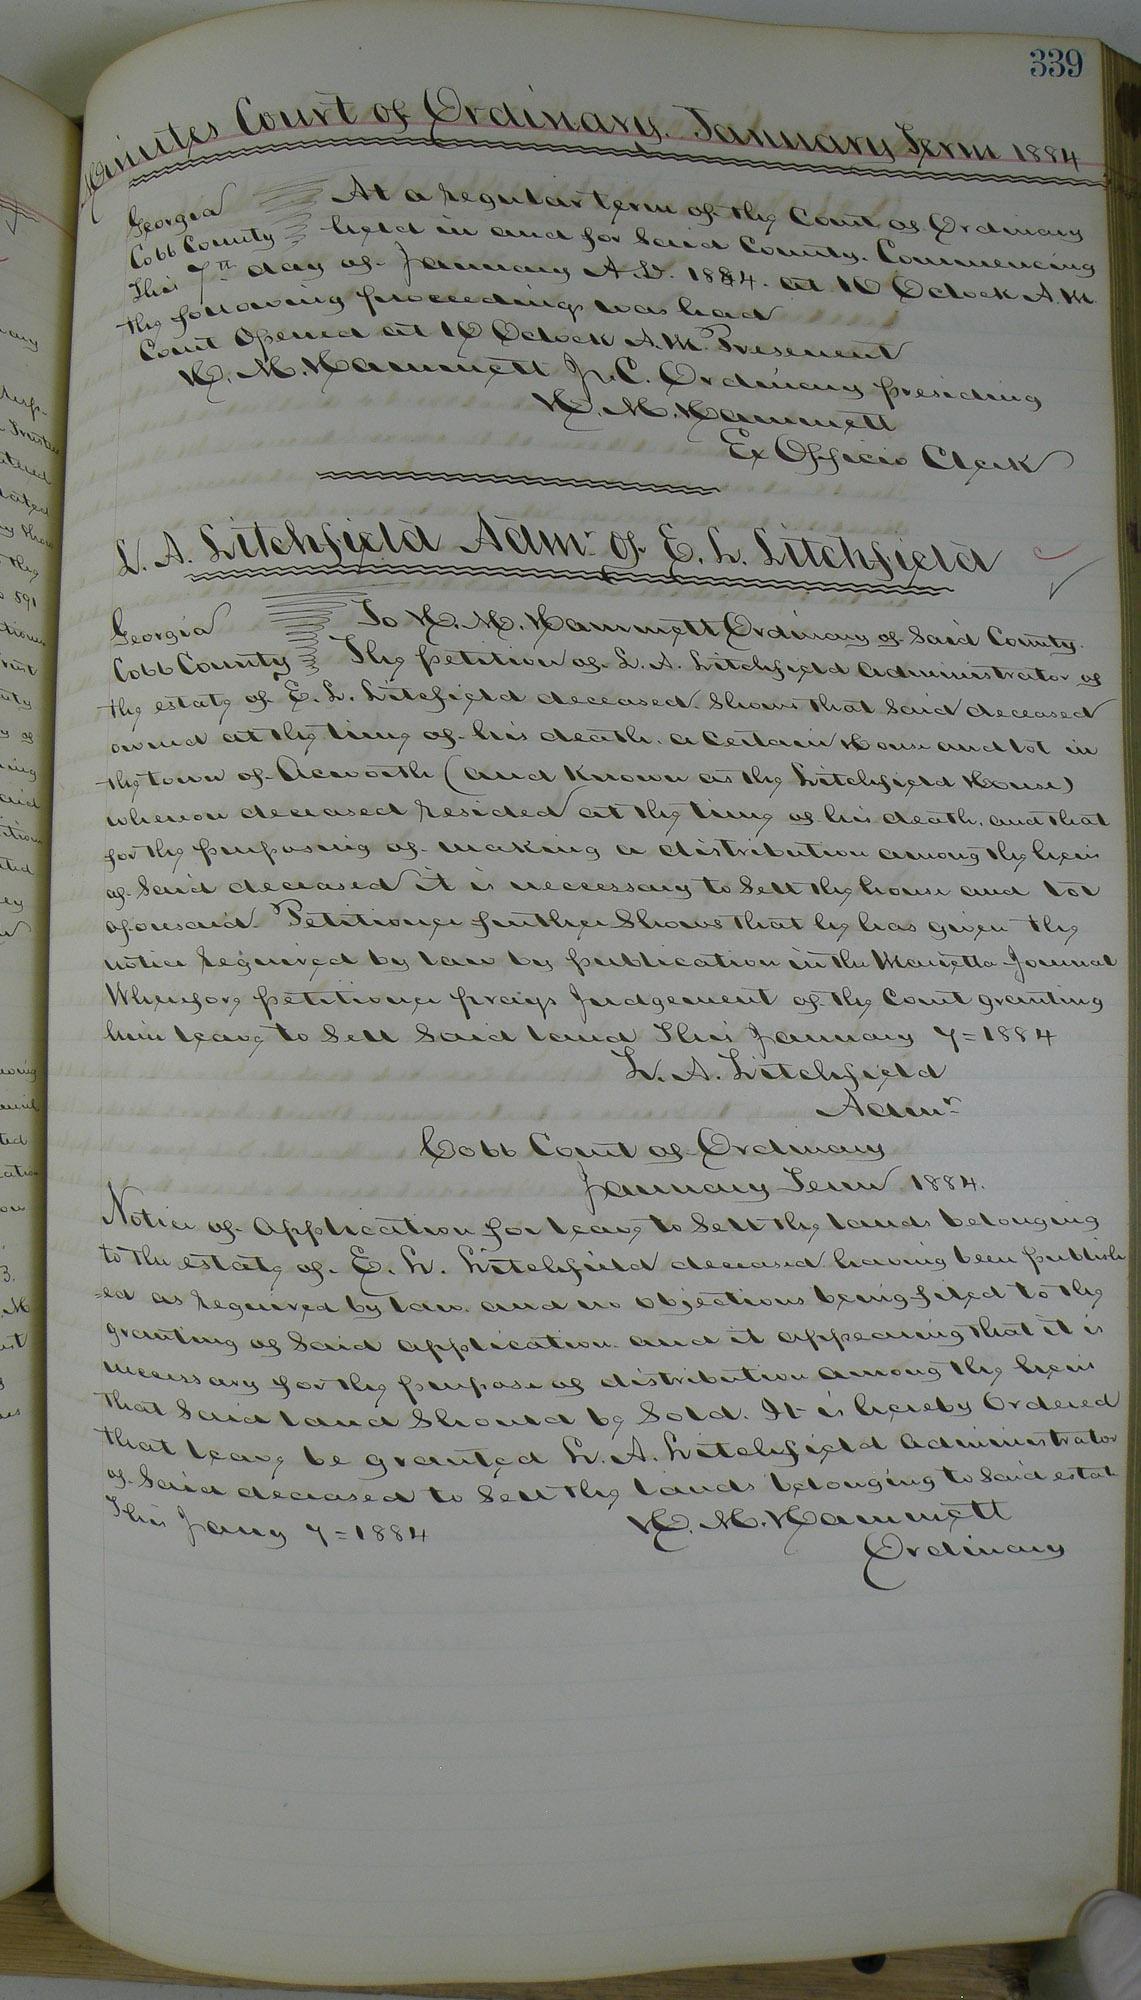 339
Minutes Court of Ordinary. January Term 1884
Georgia At a regular term of the Court of Ordinary
Cobb County held in and for Said County. Commencing
This 7th day of January A.D. 1884. at 10 Oclock A.M.
the following proceedings was had
Court Opened at 10 Oclock A.M. Presenent
H. M. Hammett J.C. Ordinary presiding
H. M. Hammett
Ex Officio Clerk
L. A. Litchfield Admr. of E. L. Litchfield
Georgia To H. M. Hammett Ordinary of Said County.
Cobb County The petition of L. A. Litchfield administrator of
the estate of E. L. Litchfield deceased. Shows that Said deceased
owned at the time of his death. a certain House and lot in
the town of Acworth (and known as the Litchfield House)
whereon deceased resided at the time of his death. and that
for the purposing of making a distribution among the heirs
of Said deceased it is neccessary to Sell the house and lot
aforesaid. Petitioner further Shows that he has given the
notice required by law by publication in the Marietta Journal
Wherefore petitioner prays Judgement of the Court granting
him leave to Sell Said land This January 7=1884
L. A. Litchfield
Admr
Cobb Court of Ordinary
January Term 1884.
Notice of Application for leave to Sell the lands belonging
to the estate of E. L. Litchfield deceased having been publish
=ed as required by law. and no objections being filed to the
granting of Said application. and it appearing that it is
necessary for the purpose of distribution among the heirs
that Said land Should be Sold. It is hereby Ordered
that leave be granted L. A. Litchfield administrator
of Said deceased to Sell the lands belonging to Said estate
This Jany 7=1884 H. M. Hammett
Ordinary